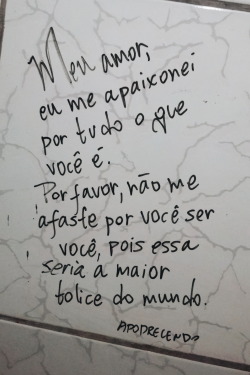 Meu amor,
eu me apaixonei
por tudo o que
você é.
Por favor, não me
afaste por você ser
você, pois essa
seria a maior
tolice do mundo.
APODRECENDO